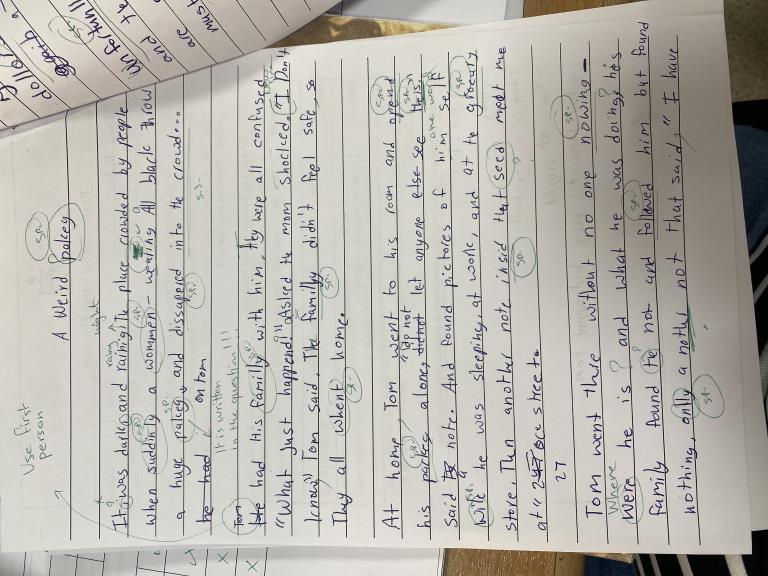 dollor
Use first
person
sp.
A Weird palkey
night
rainy
It was dark and rainigin place crowded by people
sp.
when suddinly a wommen - weating All black throw
sp.
a huge palkey, and dissappired into the crowd...
sp.
he had on tom
It is written
in the question!!!
Tom
He had His familly with him, they were all confused
"What just happend!" Asked the mom shocked. "I Don't
know" Tom said, The familly didn't feel safe, so
They all whent home.
sp.
At home, Tom went to his room and opend
sp.
"do not
his parkes alone, did not let anyone else see this
one word
said the note. And found pictores of him self
sp.
wile he was sleeping, at work, and at the grocury
sp.
store, Then another note insid that seed meet me
sp.
at "27 ore streeto
27
sp.
Tom went there without no one nowing -
Where
Were he is? and what he was doing? his
sp.
family found the not and follewed him but found
nothing, only a nother not that said, "I have
sp.